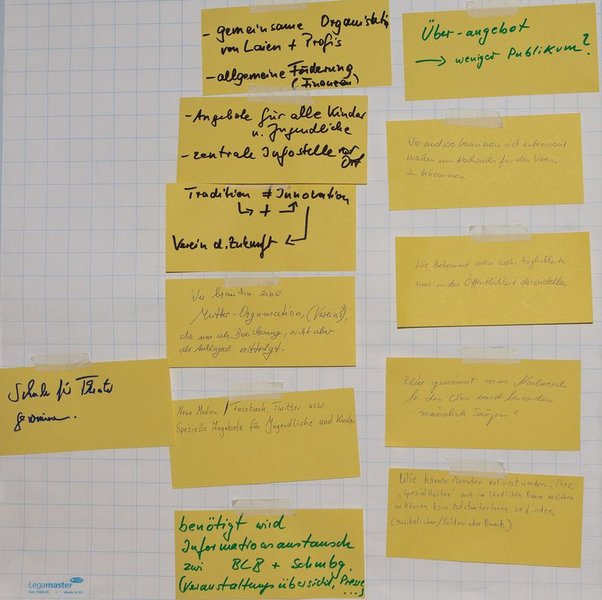 - gemeinsame Organisati
von Laien + Profis
- allgemeine Förderung
(Finanzen)
- Angebote für alle Kinder
u. Jugendliche
- zentrale Infostelle vor
Ort
Tradition ≠ Innovation
+
Verein d. Zukunft
Wir brauchen eine
Mutter-Organisation, (Verein?),
die uns als Bereicherung, nicht aber
als Anhängsel mitträgt.
Neue Medien / Facebook, Twitter usw.
Spezielle Angebote für Jugendliche und Kinder
benötigt wird
Informationsaustausch
zwi BLB + Schmbg.
(Veranstaltungsübersicht, Presse
...)
Schule für Theater
gewinnen.
Über-angebot
→ weniger Publikum?
Wie und wo kann man sich interessant
machen um Nachwuchs für den Verein
zu bekommen
Wie bekommt man mehr Möglichkeiten
uns in der Öffentlichkeit darzustellen
Wie gewinnt man Nachwuchs
für den Chor und besonders
männliche Sänger?
Wie können Menschen motiviert werden, ihre
"Spezialitäten" auch im ländlichen Raum
zu können bzw. Mitstreiter/innen zu finden
(Musikalischer / Bildnerischer Bereich)
Legamaster